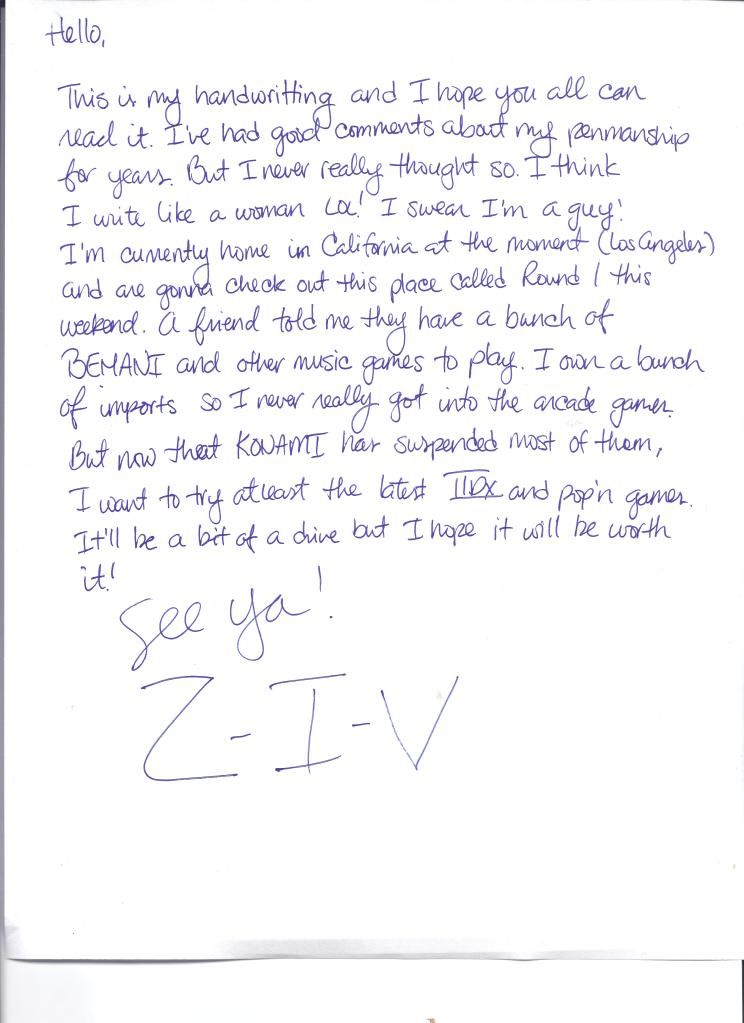 Hello,
This is my handwritting and I hope you all can
read it. I've had good comments about my penmanship
for years. But I never really thought so. I think
I write like a woman LOL! I swear I'm a guy!
I'm currently home in California at the moment (Los Angeles)
and are gonna check out this place called Round 1 this
weekend. A friend told me they have a bunch of
BEMANI and other music games to play. I own a bunch
of imports so I never really got into the arcade games.
But now that KONAMI has suspended most of them,
I want to try atleast the latest IIDX and pop'n games.
It'll be a bit of a drive but I hope it will be worth
it!
See ya!
Z-I-V